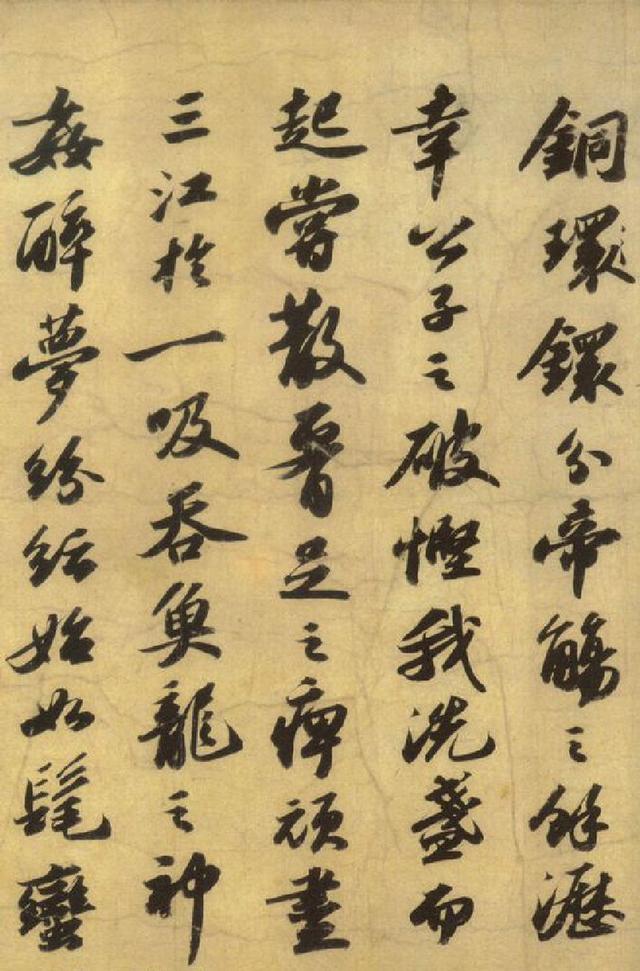 銅環鐶分帝觴之餘瀝
幸公子之破慳我洗盞而
起嘗散腰足之痺頑盡
三江於一吸吞魚龍之神
姦醉夢紛紜始如髦蠻